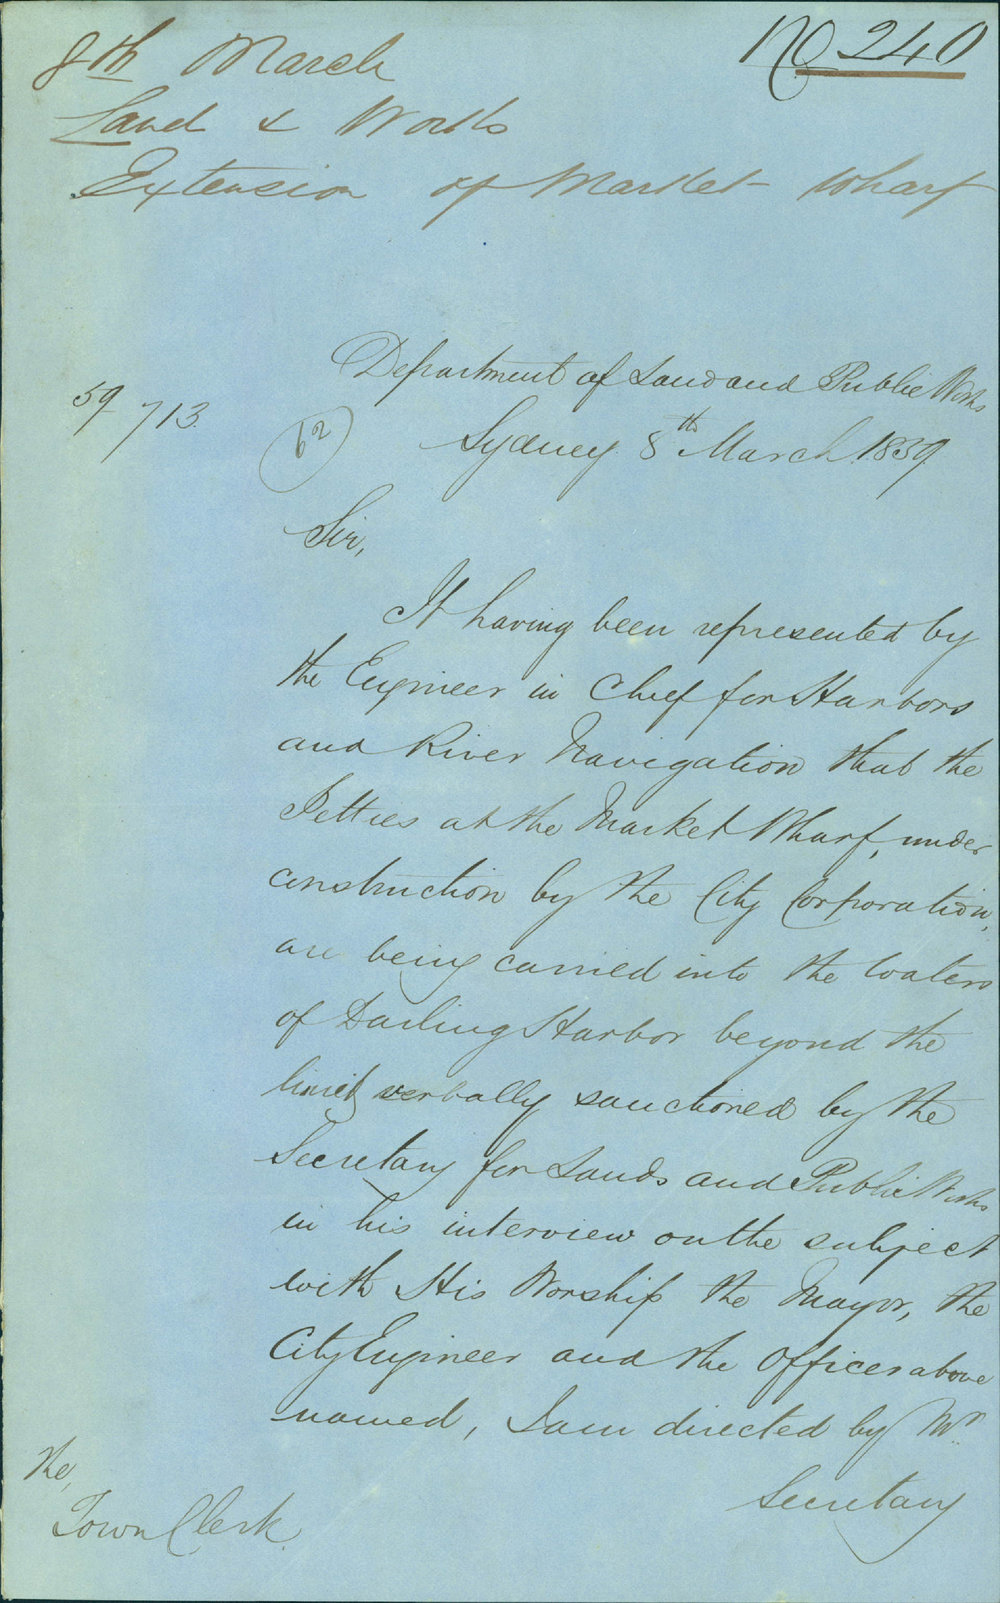 8th March
No 240
Land & Works
Extension of Market Wharf
Department of Land and Public Works
59/713
62
Sydney 8th March 1859
Sir,
It having been represented by
the Engineer in Chief for Harbors
and River Navigation that the
Jetties at the Market Wharf, under
construction by the City Corporation,
are being carried into the waters
of Darling Harbor beyond the
limit verbally sanctioned by the
Secretary for Lands and Public Works
in his interview on the subject
with His Worship the Mayor, the
City Engineer and the Officer above
named, I am directed by Mr
Secretary
The,
Town Clerk.